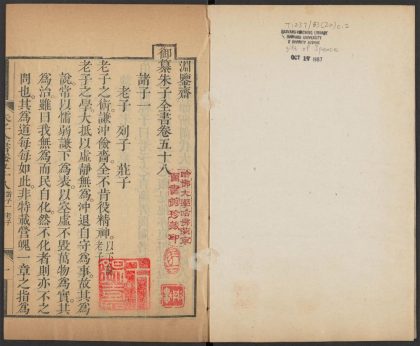 淵鑒齋
御纂朱子全書卷五十八
諸子一
老子 列子 莊子
老子之術謙沖儉嗇全不肯役精神
老子之學大抵以虛靜無為沖退自守為事故其為
說常以懦弱謙下為表以空虛不毀萬物為實其
為治雖曰我無為而民自化然不化者則亦不之
問也其為道每每如此非特載營魄一章之指為
哈佛大學哈佛燕京
圖書館珍藏印
HARVARD-YENCHING LIBRARY
HARVARD UNIVERSITY
2 DIVINITY AVENUE
OCT 19 1987